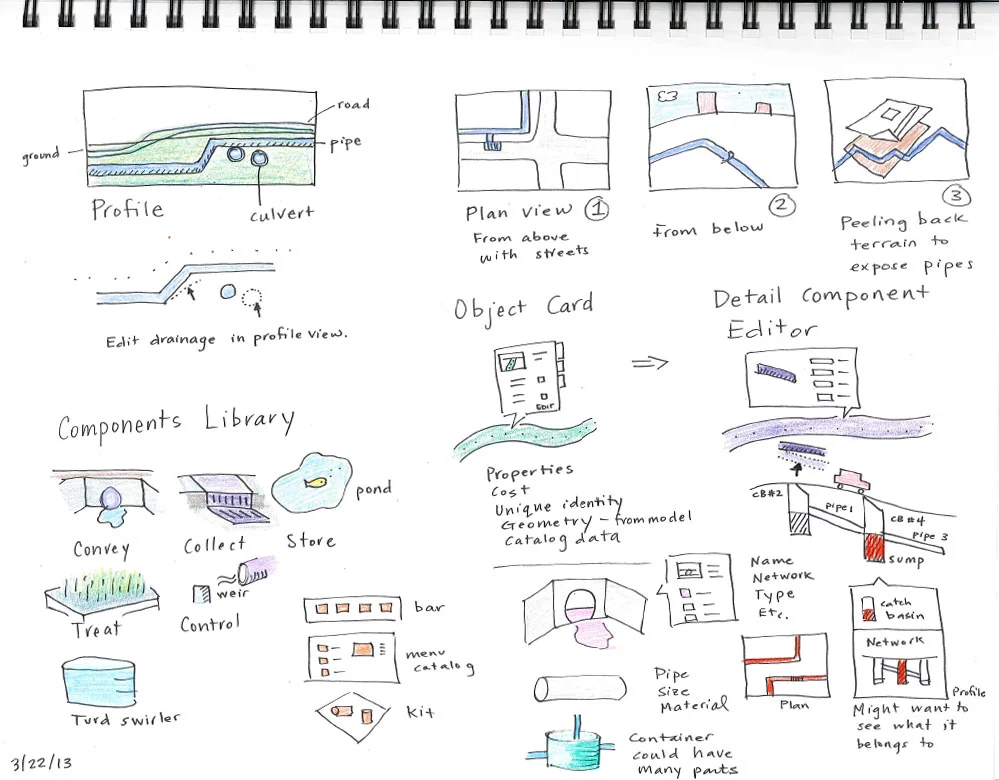 ground
road
pipe
culvert
Profile
Edit drainage in profile view.
Plan view 1
From above
with streets
2
From below
3
Peeling back
terrain to
expose pipes
Components Library
Convey
Collect
Store
pond
Treat
weir
Control
Turd swirler
bar
menu
catalog
kit
Object Card
EDIT
Properties
Cost
Unique identity
Geometry - from model
Catalog data
Name
Network
Type
Etc.
Pipe
Size
Material
Container
could have
many parts
Detail Component
Editor
CB#2
Pipe 1
CB #4
Pipe 3
Sump
catch
basin
Network
Profile
Plan
Might want to
see what it
belongs to
3/22/13